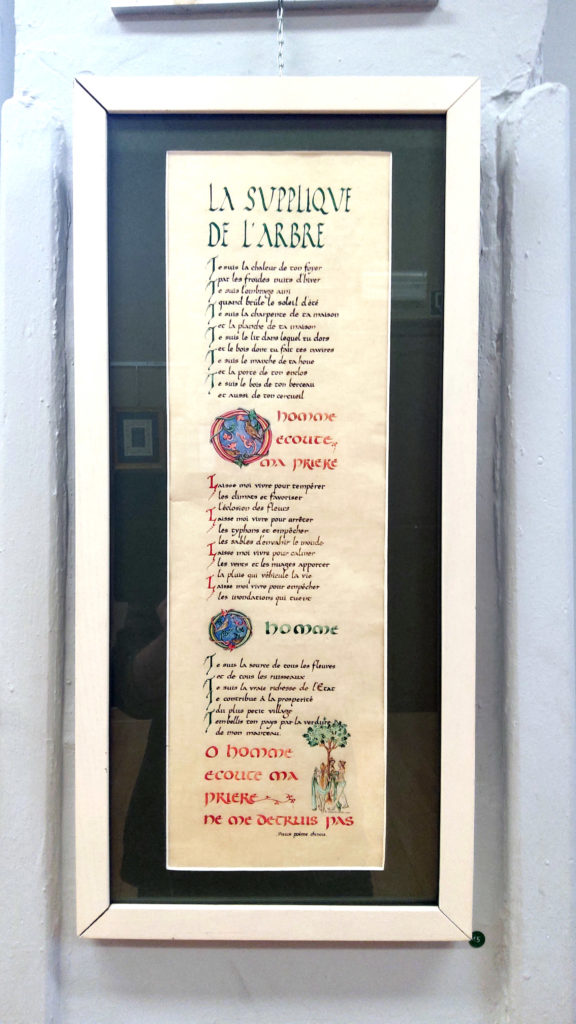 LA SVPPLIQVE
DE L'ARBRE
Je suis la chaleur de ton foyer
par les froides nuits d'hiver
Je suis l'ombrage ami
quand brûle le soleil d'été
Je suis la charpente de ta maison
et la planche de ta maison
Je suis le lit dans lequel tu dors
et le bois dont tu fait tes navires
Je suis le manche de ta houe
et la porte de ton enclos
Je suis le bois de ton berceau
et aussi de ton cercueil
O homme
ecoute
ma priere
Laisse moi vivre pour tempérer
les climats et favoriser
l'éclosion des fleurs
Laisse moi vivre pour arrêter
les typhons et empêcher
les sables d'envahir le monde
Laisse moi vivre pour calmer
les vents et les nuages apporter
la pluie qui véhicule la vie
Laisse moi vivre pour empêcher
les inondations qui tuent
O homme
Je suis la source de tous les fleures
et de tous les ruisseaux
Je suis la vraie richesse de l'Etat
Je contribue à la prosperité
du plus petit village
J'embellis ton pays par la verdure
de mon manteau
O homme
ecoute ma
priere
ne me detruis pas
Vieux poème chinois
15